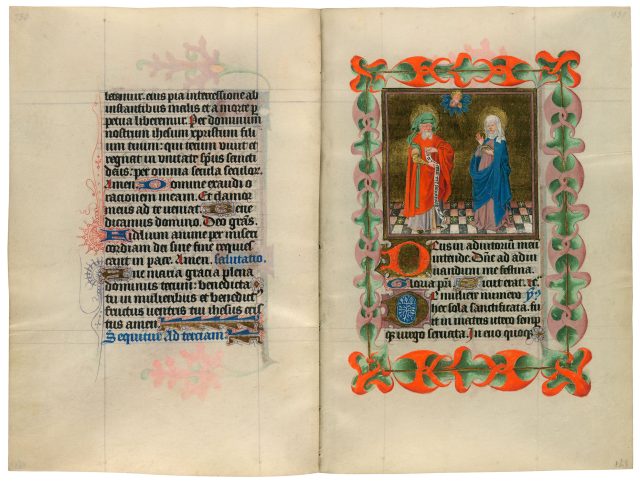 letmur. eius pia intercessione ab
instantibus malis et a morte p
petua liberemur. Per dominum
nostrum ihesum xpristum fili
um tuum: qui tecum vivit et
regnat in unitate spūs sancti
deus: per omnia secula seculor.
Amen. Domine exaudi o
rationem meam. Et clamor
meus ad te veniat. Bene
dicamus domino. Deo grās.
Fidelium anime per miseri
cordiam dei sine fine requies
cant in pace. Amen. salutatio.
Ave maria gracia plena
dominus tecum: benedicta
tu in mulieribus et benedict
fructus ventris tui ihesus cris
tus amen.
Sequitur ad terciam:
Deus in adiutoriū meū
intende. Dñe ad adiu
vandum me festina.
Gloria pr̄i Sicut erat.
E mulier̄ numero
hec sola sanctificata. fu
it et in matris utero semp
qz virgo servata. In evo quoqz